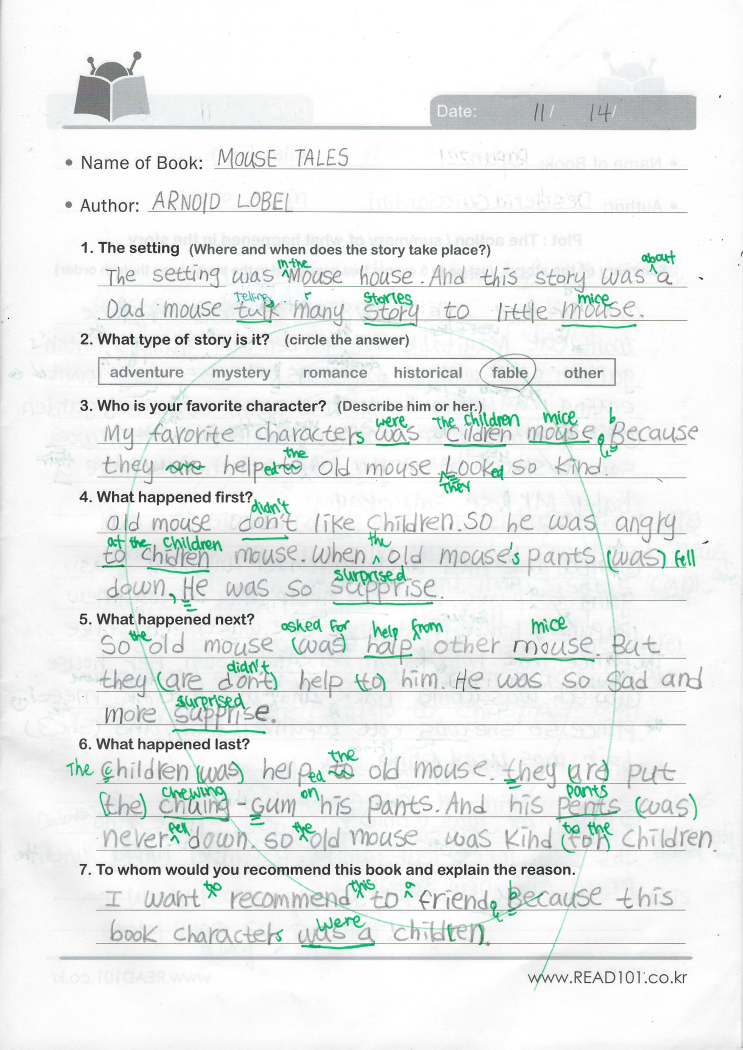 Date: 11/ 14/
• Name of Book: MOUSE TALES
• Author: ARNOlD LOBEL
1. The setting (Where and when does the story take place?)
in the about
The setting was Mouse house. And this story was a
Telling stories mice
Dad mouse talk many story to little mouse.
2. What type of story is it? (circle the answer)
adventure mystery romance historical fable other
3. Who is your favorite character? (Describe him or her.)
were the children mice b
My favorite characters was cildren mouse. Because
the
they are helped to old mouse. Looked so kind.
They
4. What happened first?
didn't
Old mouse don't like children. SO he was angry
at the children the
to children mouse. When old mouse's pants (was) fell
surprised
down, He was so supprise.
5. What happened next?
the asked for help from mice
So old mouse (was) halp other mouse. But
didn't
they (are don't) help (to) him. He was so sad and
surprised
more supprise.
6. What happened last?
the
The children (was) helped to old mouse. they (are) put
chewing on pants
(the) chuing-gum his pants. And his pents (was)
fell the to the
never down. so old mouse was kind (ton) children.
7. To whom would you recommend this book and explain the reason.
to this a b
I want recommend to friend, Because this
were
book characters was a children.
www.READ101.co.kr